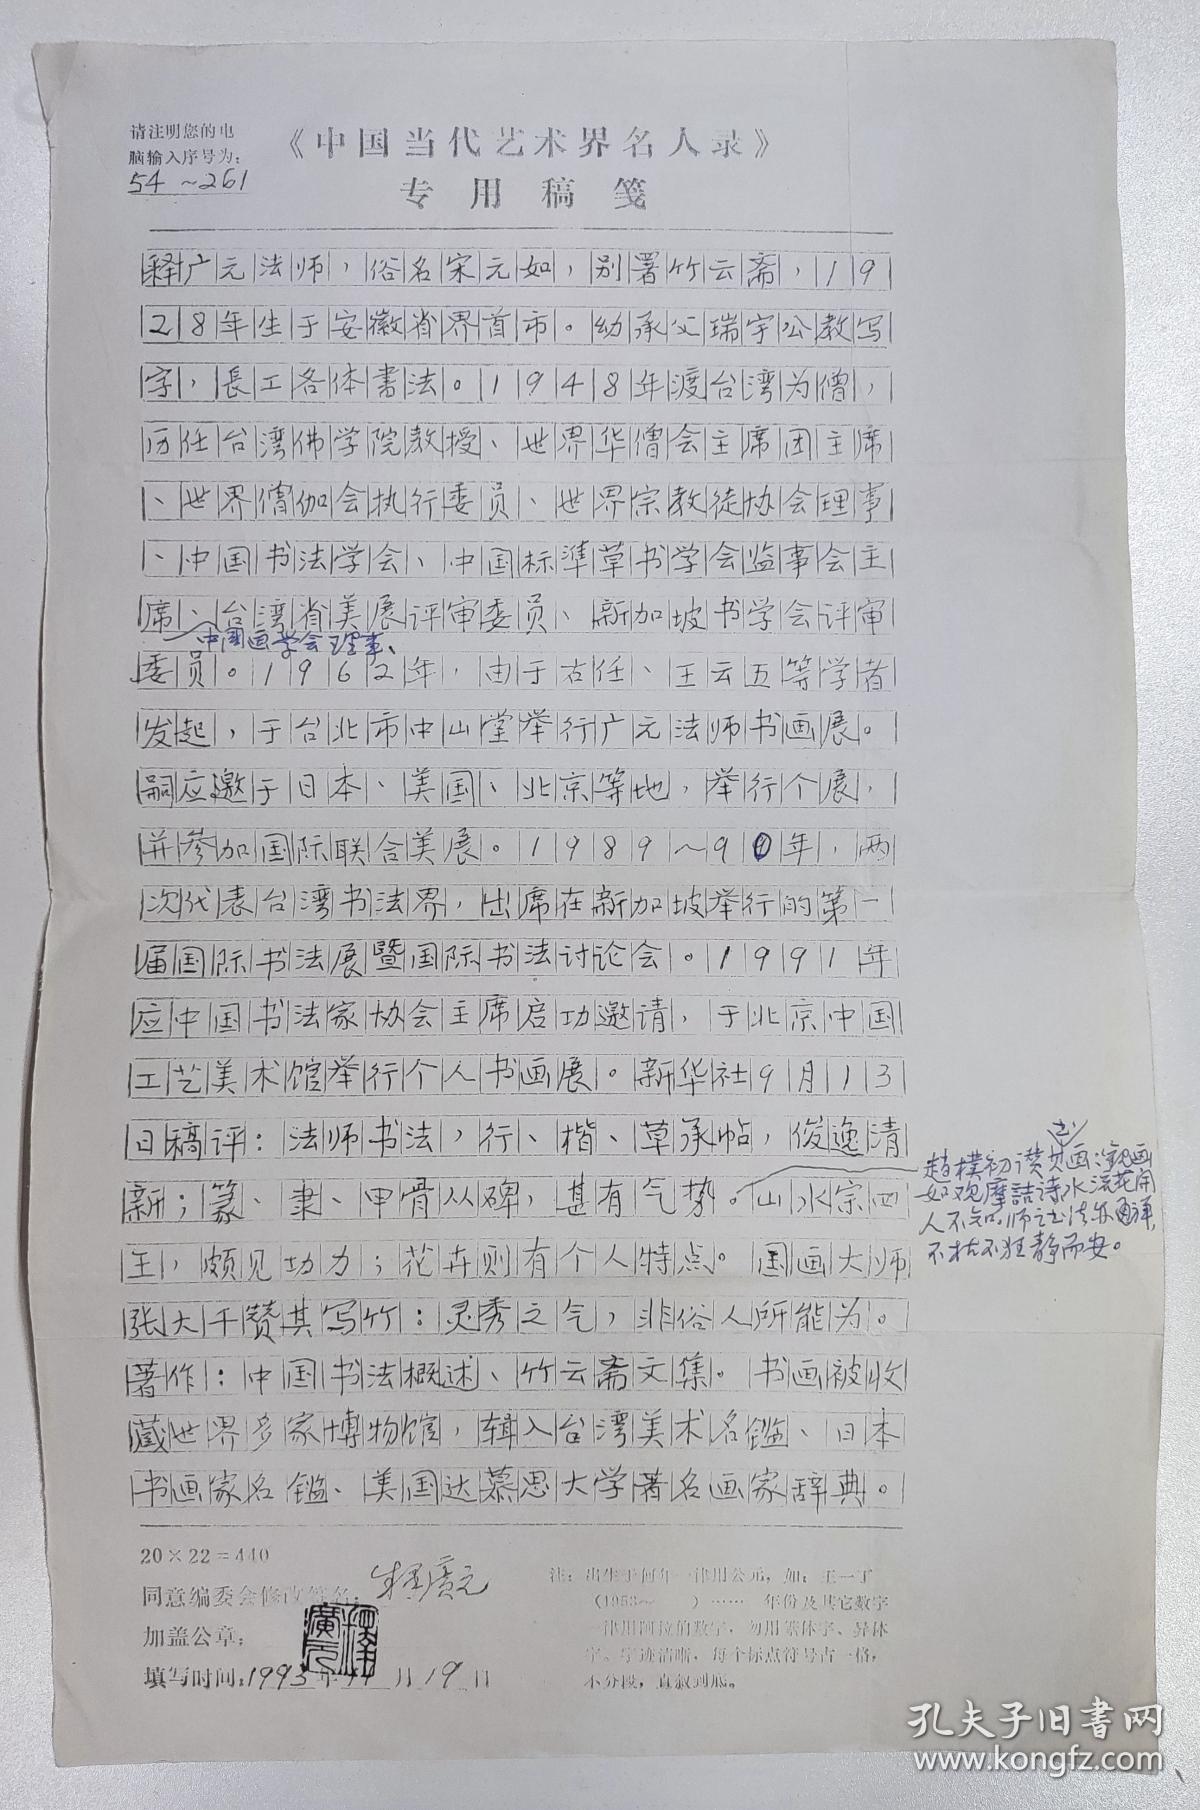 请注明您的电
脑输入序号为:
54～261
《中国当代艺术界名人录》
专用稿笺
释广元法师，俗名宋元如，别署竹云斋，19
28年生于安徽省界首市。幼承父瑞宇公教写
字，長工各体書法。1948年渡台湾为僧，
历任台湾佛学院教授、世界华僧会主席团主席
、世界僧伽会执行委员、世界宗教徒协会理事
、中国书法学会、中国标準草书学会监事会主
席、台湾省美展评审委员、新加坡书学会评审
中国画学会理事、
委员。1962年，由于右任、王云五等学者
发起，于台北市中山堂举行广元法师书画展。
嗣应邀于日本、美国、北京等地，举行个展，
并参加国际联合美展。1989～90年，两
次代表台湾书法界，出席在新加坡举行的第一
届国际书法展暨国际书法讨论会。1991年
应中国书法家协会主席启功邀请，于北京中国
工艺美术馆举行个人书画展。新华社9月13
日稿评：法师书法，行、楷、草承帖，俊逸清
新；篆、隶、甲骨从碑，甚有气势。山水宗四
王，颇见功力；花卉则有个人特点。国画大师
张大千赞其写竹：灵秀之气，非俗人所能为。
著作：中国书法概述、竹云斋文集。书画被收
藏世界多家博物馆，辑入台湾美术名鑑、日本
书画家名鑑、美国达慕思大学著名画家辞典。
趙樸初讃其画:
如观摩詰诗水流花開
人不知。师之书法
不枯不狂静而安。
20×22=440
同意编委会修改签名:释廣元
加盖公章:
釋廣元
填写时间:1993年11月19日
注: 出生于何年一律用公元，如: 王一丁
(1953～ )…… 年份及其它数字
一律用阿拉伯数字，勿用繁体字、异体
字。字迹清晰，每个标点符号占一格，
不分段，直叙到底。
孔夫子旧書网
www.kongfz.com